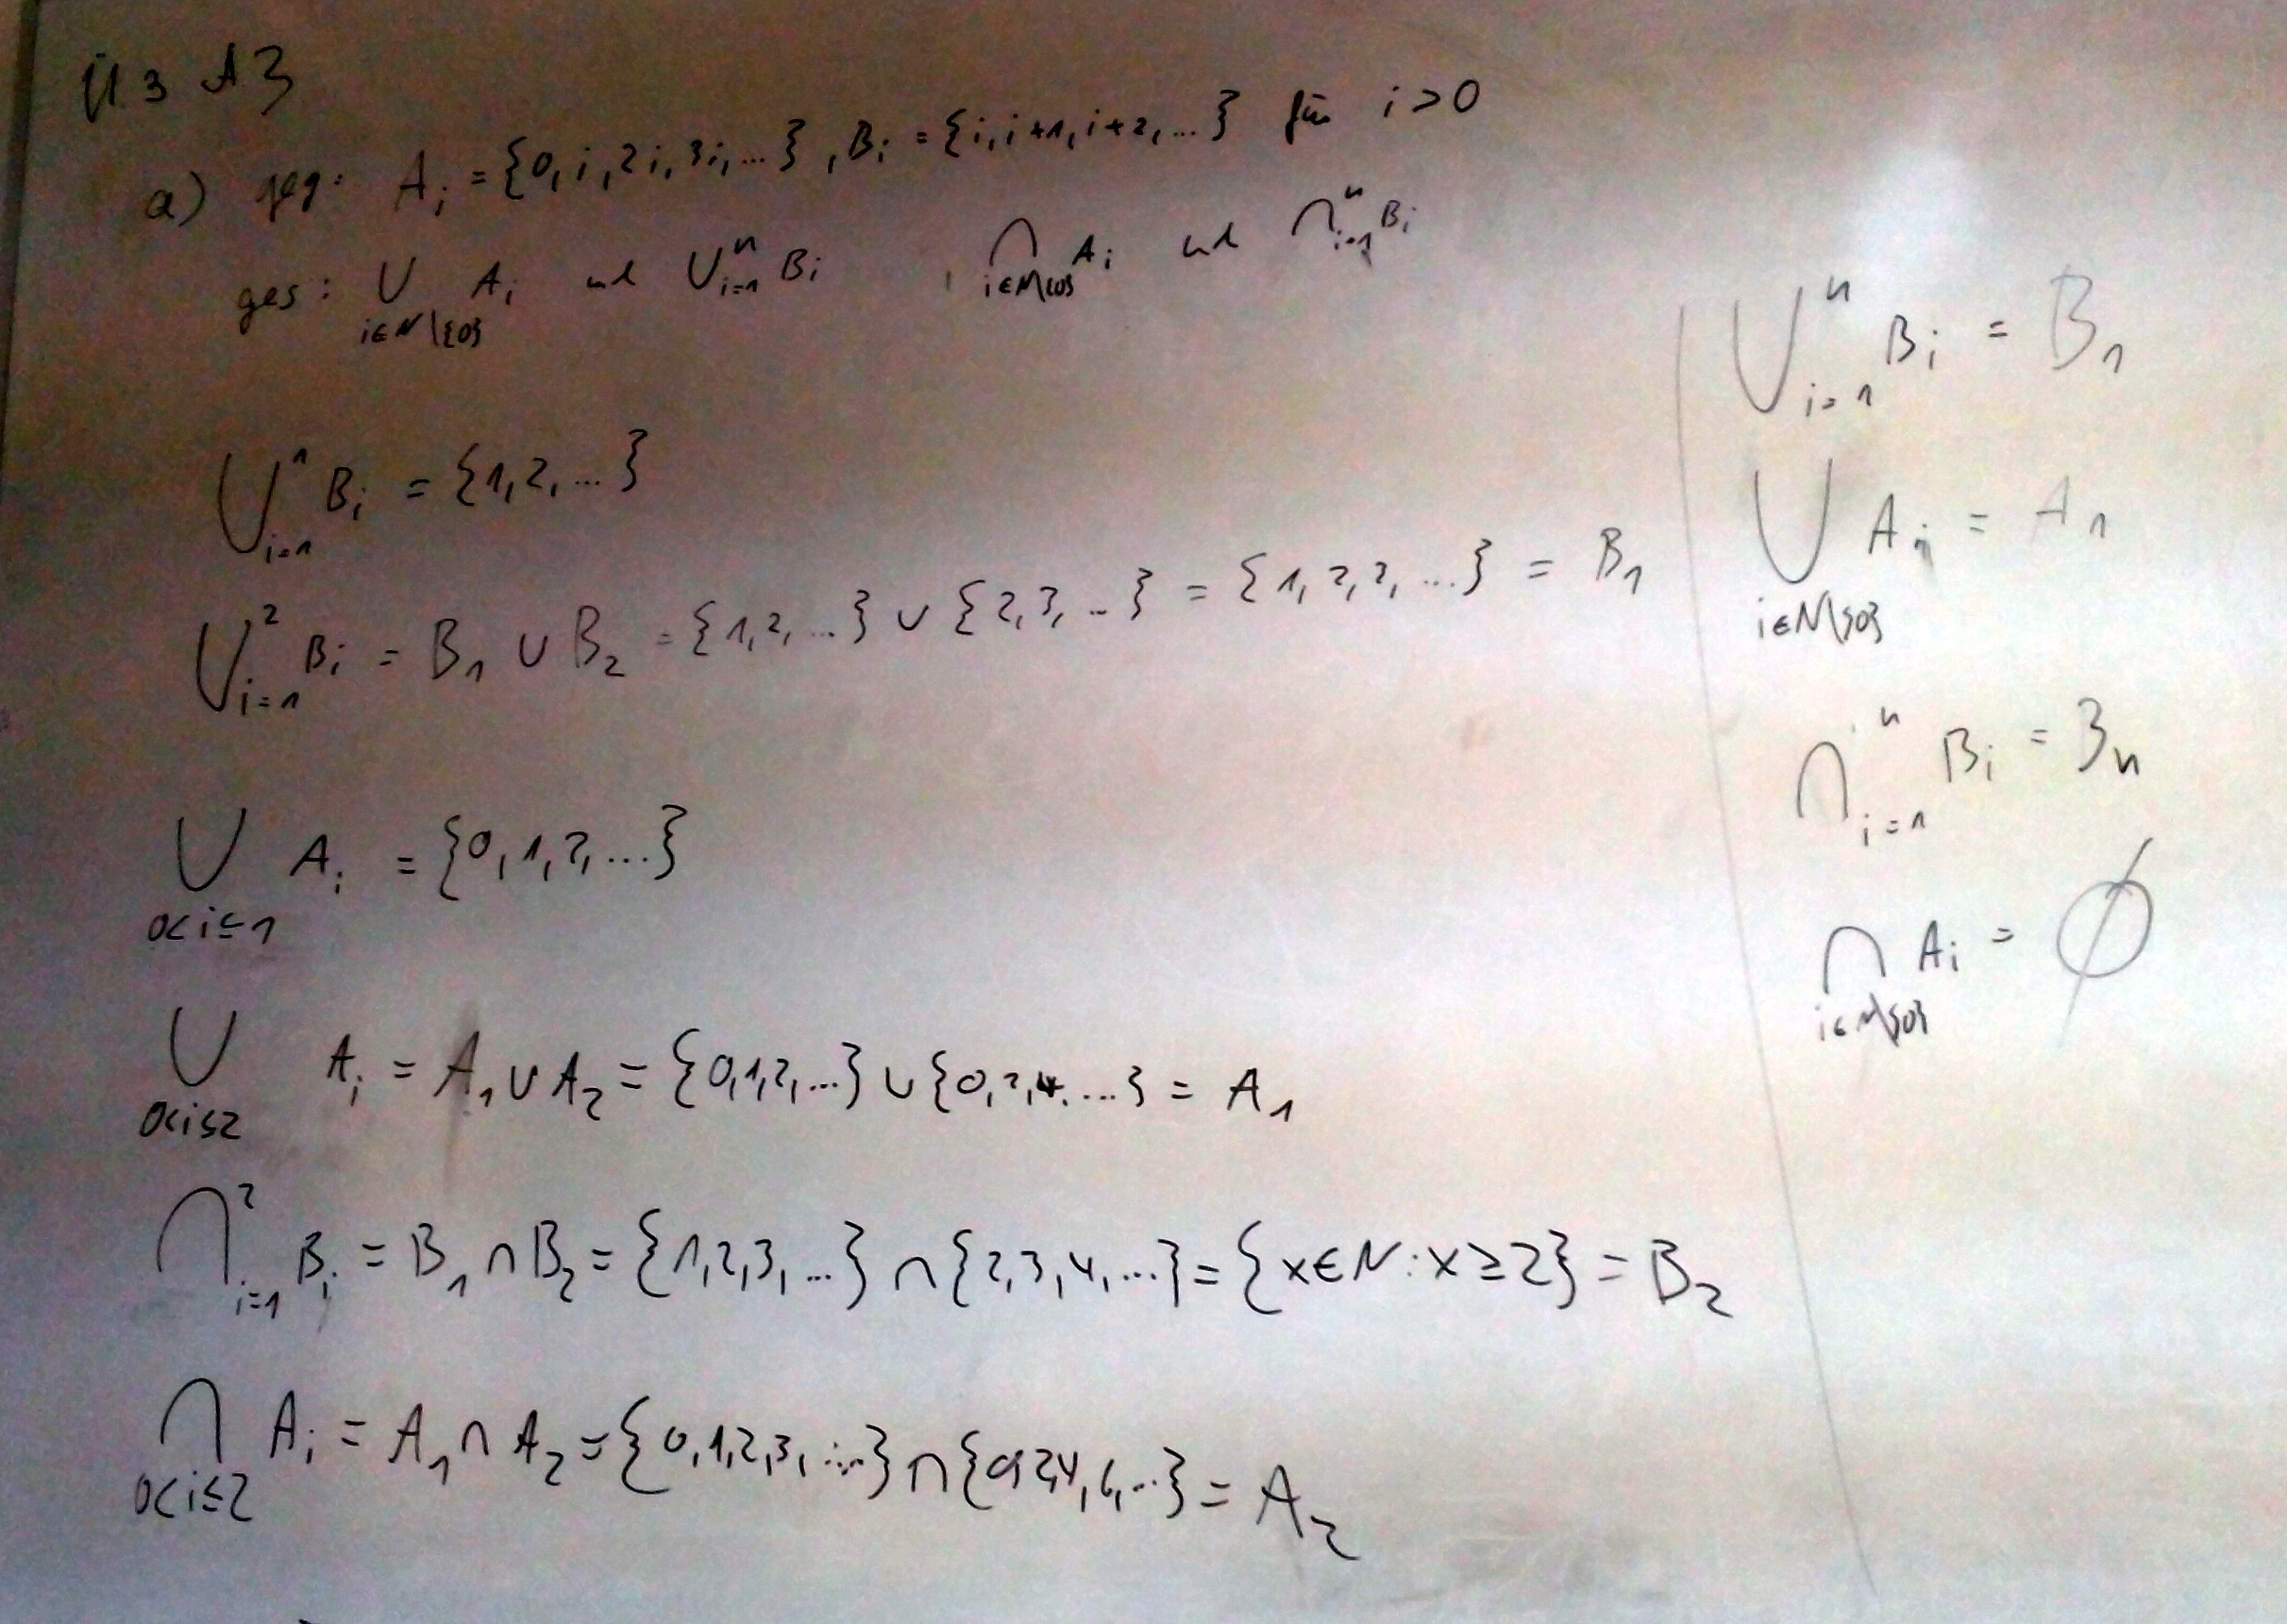 Ü 3 A3
a) geg: A_i = {0, i, 2i, 3i, ...}, B_i = {i, i+1, i+2, ...} für i > 0
ges: ⋃_{i∈N\{0}} A_i und ⋃_{i=1}^n B_i , ⋂_{i∈N\{0}} A_i und ⋂_{i=1}^n B_i
⋃_{i=1}^1 B_i = {1, 2, ...}
⋃_{i=1}^2 B_i = B_1 ∪ B_2 = {1, 2, ...} ∪ {2, 3, ...} = {1, 2, 3, ...} = B_1
⋃_{0<i≤1} A_i = {0, 1, 2, ...}
⋃_{0<i≤2} A_i = A_1 ∪ A_2 = {0, 1, 2, ...} ∪ {0, 2, 4, ...} = A_1
⋂_{i=1}^2 B_i = B_1 ∩ B_2 = {1, 2, 3, ...} ∩ {2, 3, 4, ...} = {x∈N : x ≥ 2} = B_2
⋂_{0<i≤2} A_i = A_1 ∩ A_2 = {0, 1, 2, 3, ...} ∩ {0, 2, 4, 6, ...} = A_2
⋃_{i=1}^n B_i = B_1
⋃_{i∈N\{0}} A_i = A_1
⋂_{i=1}^n B_i = B_n
⋂_{i∈N\{0}} A_i = ∅